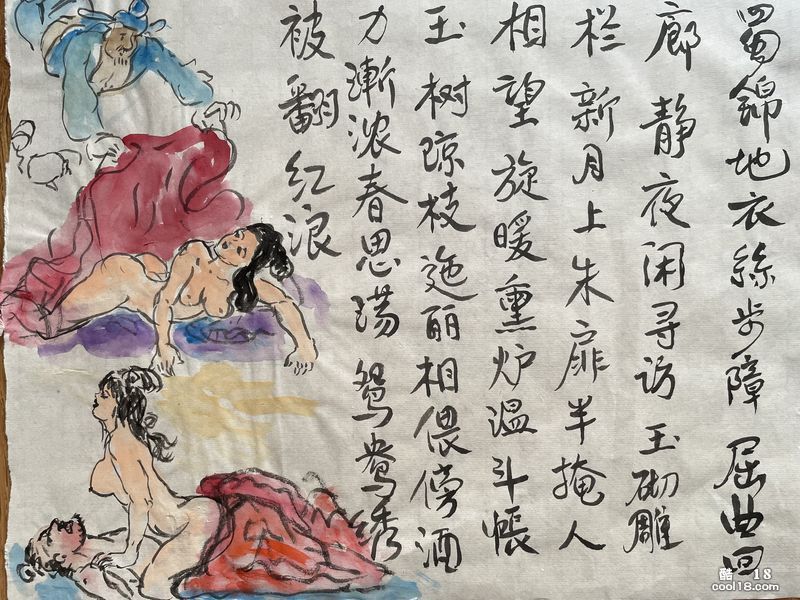 蜀錦地衣絲步障 屈曲回
廊 静夜闲寻访 玉砌雕
栏新月上朱扉半掩人
相望旋暖熏炉温斗帳
玉树琼枝迤丽相偎傍酒
力漸浓春思荡 鸳鸯绣
被翻红浪
酷 18
cool18.com